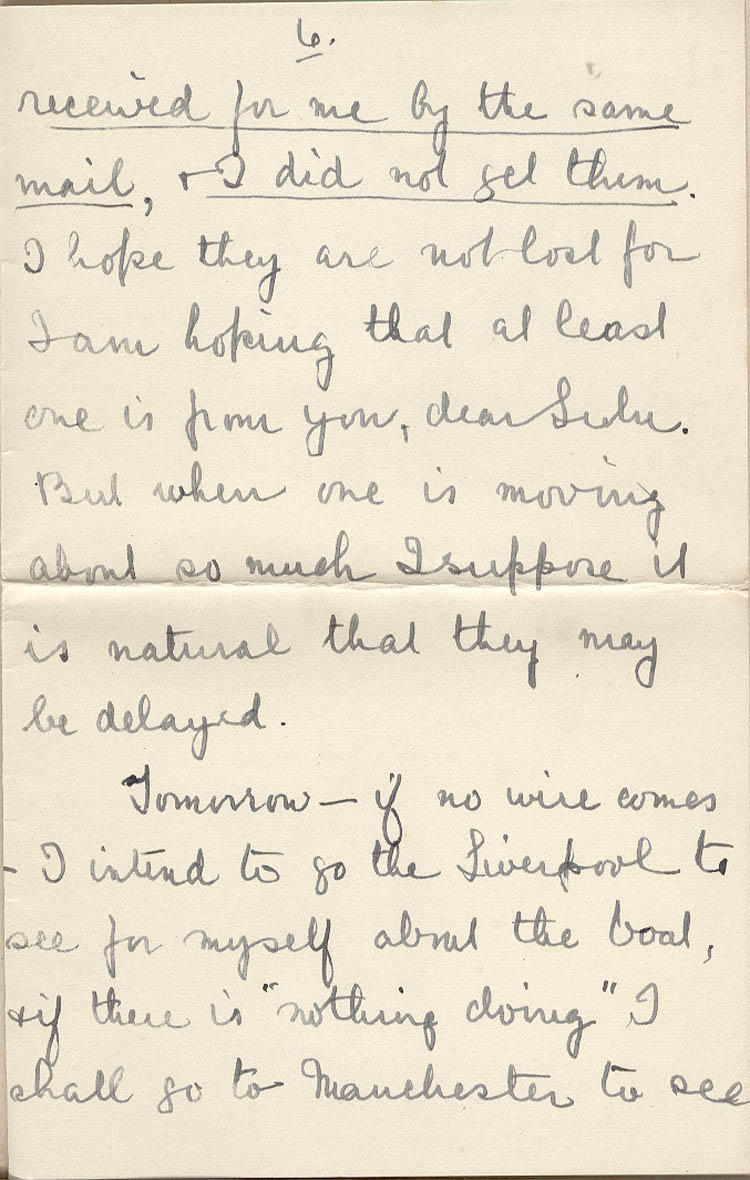 6.
received for me by the same
mail, + I did not get them.
I hope they are not lost for
I am hoping that at least
one is from you, dear Lulu.
But when one is moving
about so much I suppose it
is natural that they may
be delayed.
Tomorrow — if no wire comes
- I intend to go the Liverpool to
see for myself about the boat,
+ if there is "nothing doing" I
shall go to Manchester to see